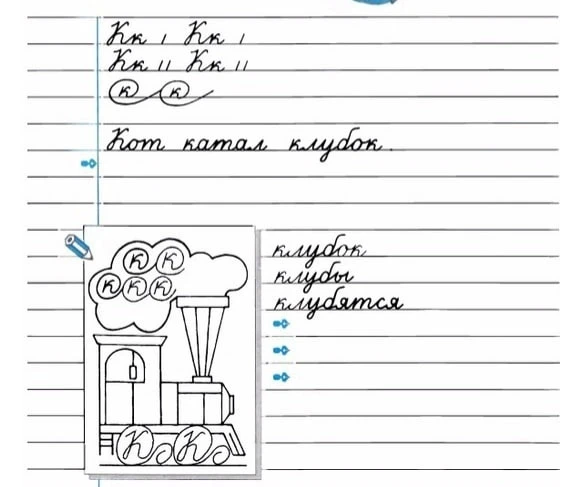 Кк Кк
Кк Кк
к к
Кот катал клубок.
К К
К К К
К К
клубок
клубы
клубятся